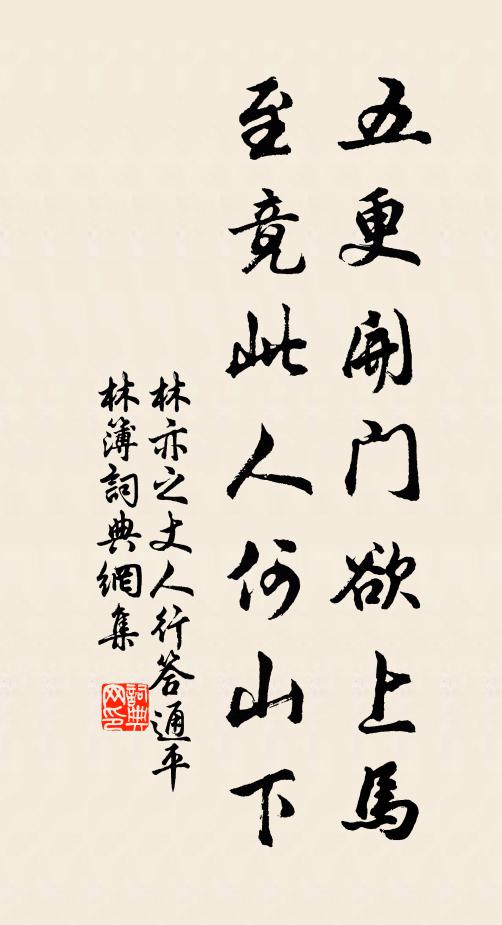 五更開門欲上馬
至竟此人何山下
林亦之丈人行答通平
林簿詞典網集
詞典
网印